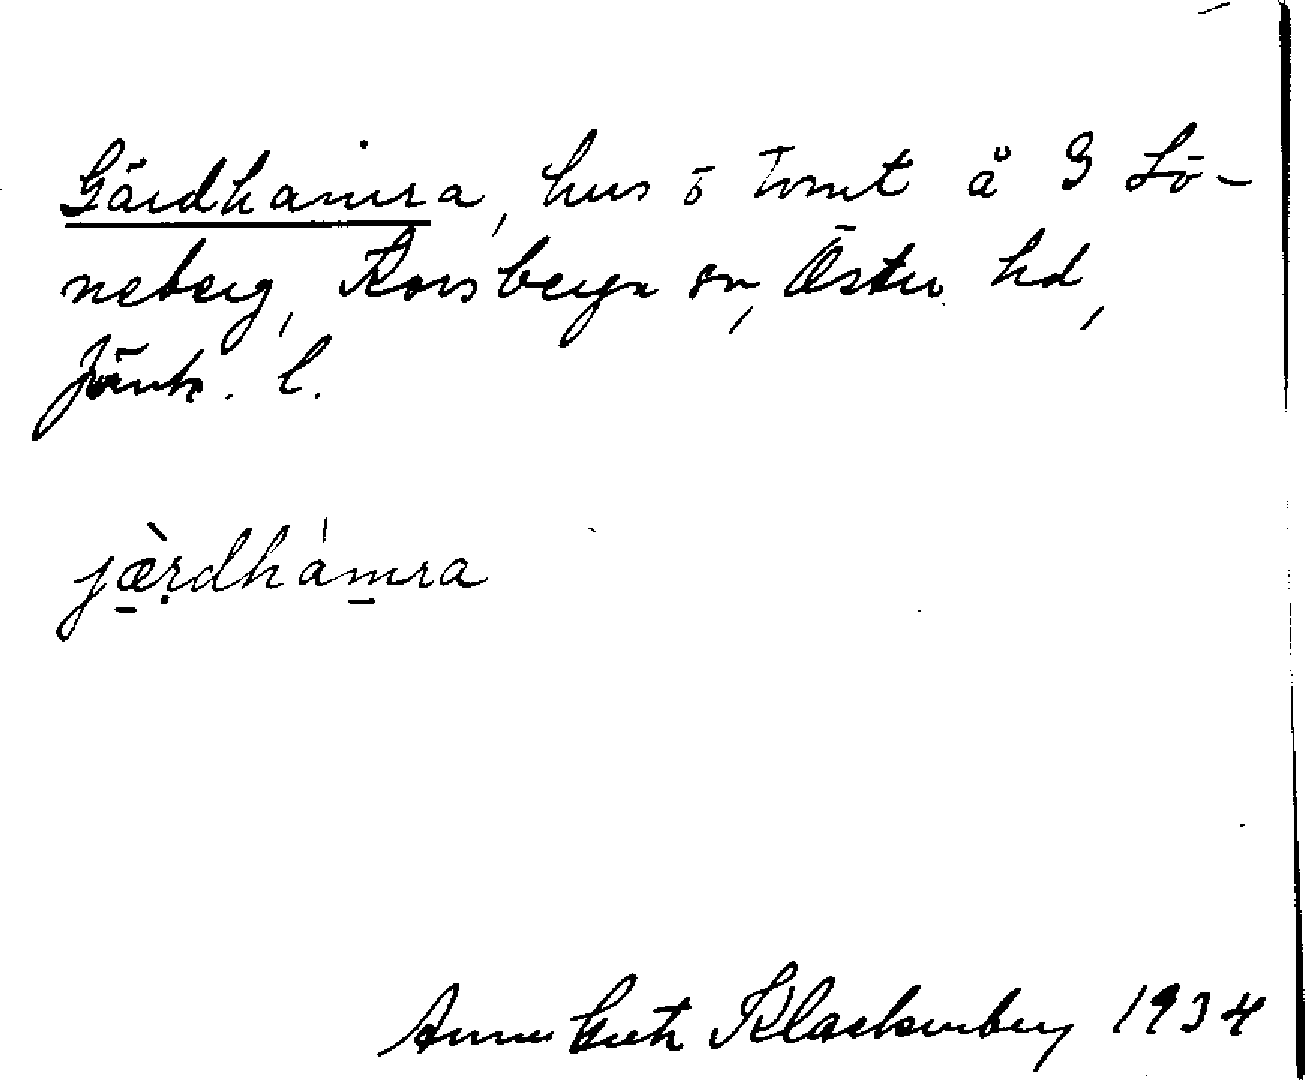 Gärdhamra, hus o tomt å G Lö-
neberg, Korsberga sn, Östra hd,
Jönk. l.
jæ̀rdhàmra
Anna Greta Klackenberg 1934